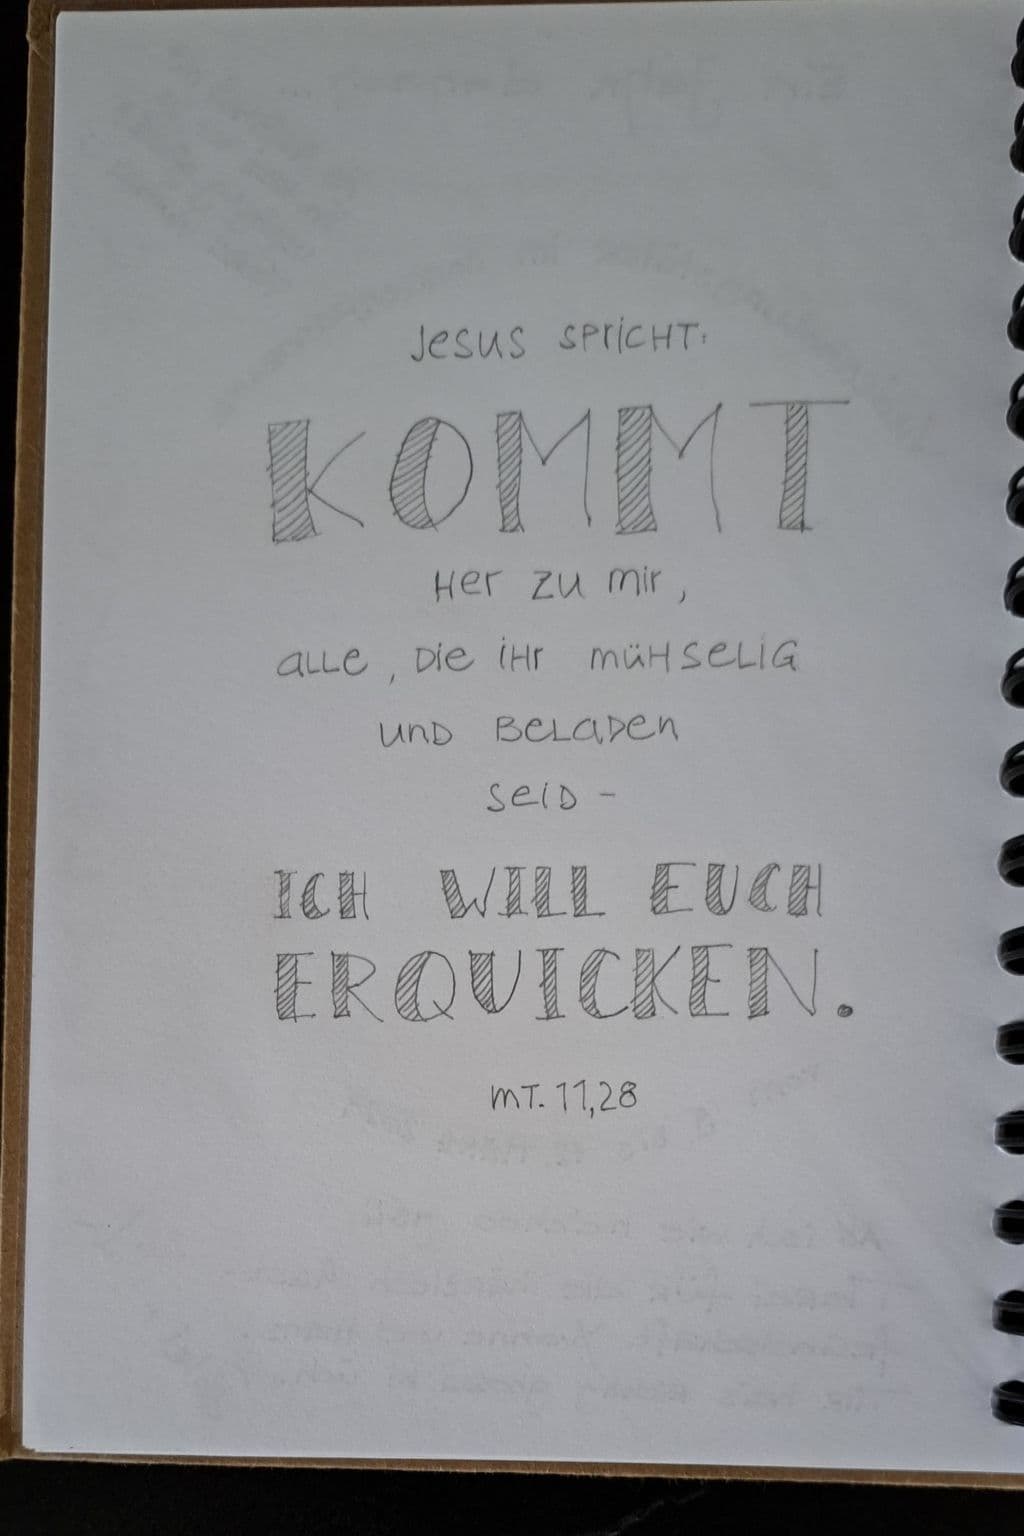 Jesus spricht:
KOMMT
Her zu mir,
alle, die ihr mühselig
und beladen
seid -
ICH WILL EUCH
ERQUICKEN.
MT. 11,28